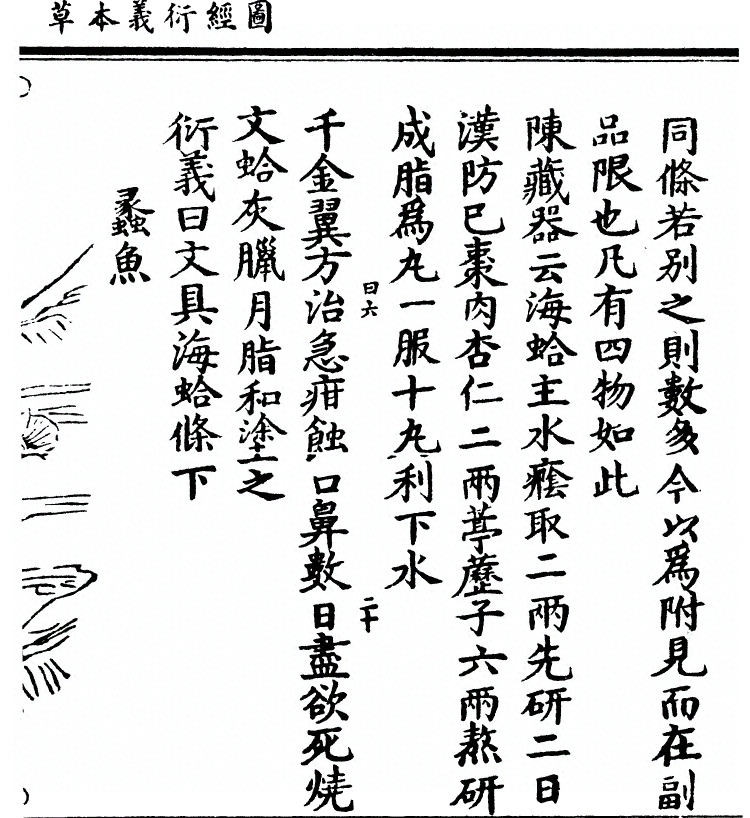 圖經衍義本草
同條若别之則數多今以爲附見而在副
品限也凡有四物如此
陳藏器云海蛤主水癊取二兩先研二日
漢防已棗肉杏仁二兩葶藶子六兩熬研
成脂爲丸一服十丸利下水
曰六
二十
千金翼方治急疳蝕口鼻數日盡欲死燒
文蛤灰臘月脂和塗之
衍義曰文具海蛤條下
蠡魚